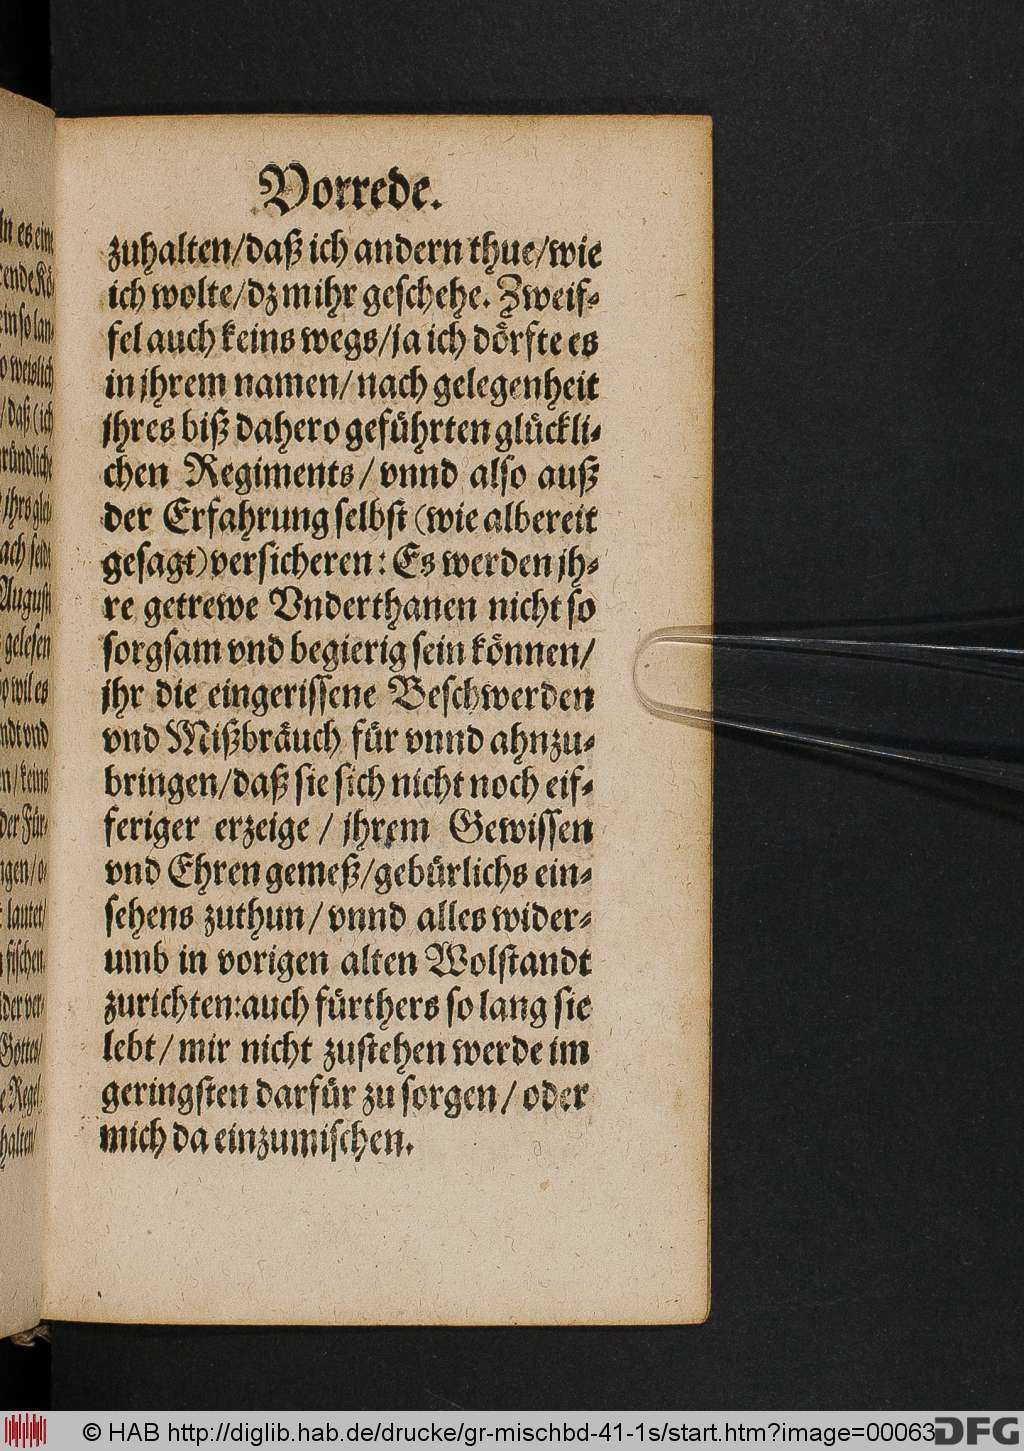 Vorrede.
zuhalten/daß ich andern thue/wie
ich wolte/dz mihr geschehe. Zweif-
fel auch keins wegs/ja ich dörfte es
in jhrem namen/nach gelegenheit
jhres biß dahero geführten glückli-
chen Regiments/vnnd also auß
der Erfahrung selbst (wie albereit
gesagt) versicheren: Es werden jh-
re getrewe Vnderthanen nicht so
sorgsam vnd begierig sein können/
jhr die eingerissene Beschwerden
vnd Mißbräuch für vnnd ahnzu-
bringen/daß sie sich nicht noch eif-
feriger erzeige/jhrem Gewissen
vnd Ehren gemeß/gebürlichs ein-
sehens zuthun/vnnd alles wider-
umb in vorigen alten Wolstandt
zurichten: auch fürthers so lang sie
lebt/mir nicht zustehen werde im
geringsten darfür zu sorgen/oder
mich da einzumischen.
© HAB http://diglib.hab.de/drucke/gr-mischbd-41-1s/start.htm?image=00063
DFG